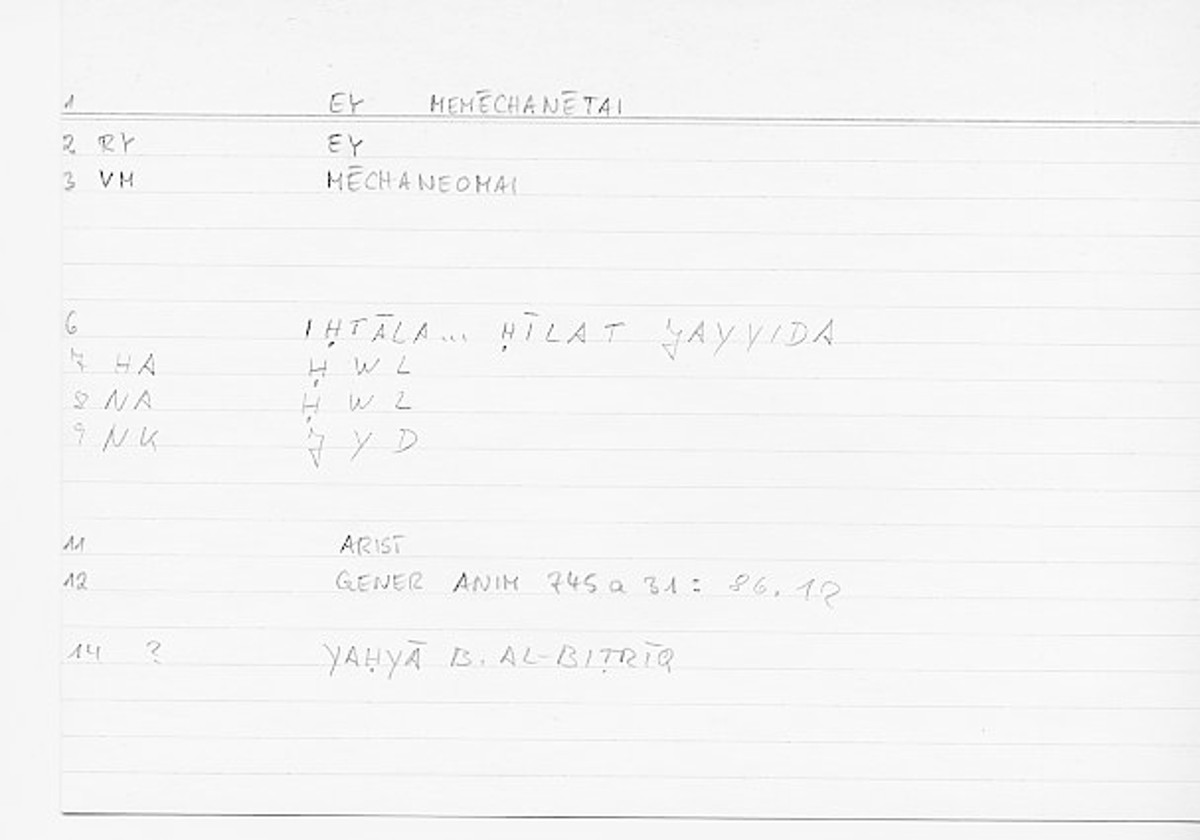 1 EY MEMĒCHANĒTAI
2 RY EY
3 VM MĒCHANEOMAI
6 IḤTĀLA... ḤĪLAT ǦAYYIDA
7 HA Ḥ W L
8 NA Ḥ W L
9 NK Ǧ Y D
11 ARIST
12 GENER ANIM 745 a 31 : 86. 12
14 ? YAḤYĀ B. AL-BIṬRĪQ